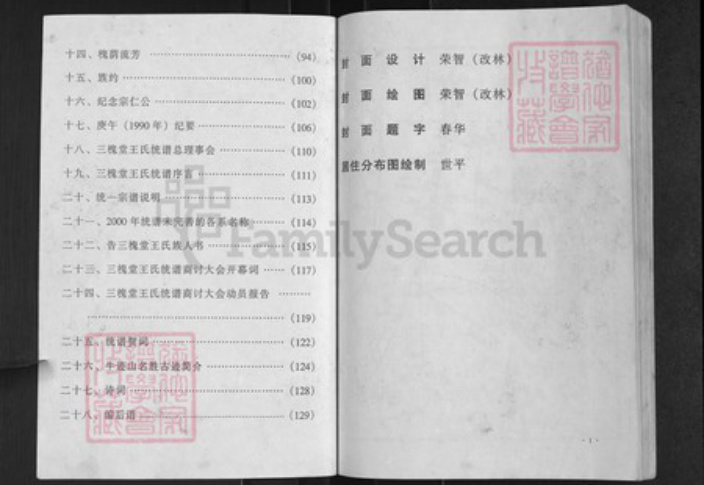 十四、槐荫流芳 ……………… (94)
十五、族约 ……………… (100)
十六、纪念宗仁公 ……………… (102)
十七、庚午(1990年)纪要 ……………… (106)
十八、三槐堂王氏统谱总理事会 ……………… (110)
十九、三槐堂王氏统谱序言 ……………… (111)
二十、统一宗谱说明 ……………… (113)
二十一、2000年统谱未完善的各系名称 ……… (114)
二十二、告三槐堂王氏族人书 ……………… (115)
二十三、三槐堂王氏统谱商讨大会开幕词 …… (117)
二十四、三槐堂王氏统谱商讨大会动员报告 ………
……………… (119)
二十五、统谱贺词 ……………… (122)
二十六、牛 山名胜古迹简介 ……………… (124)
二十七、诗词 ……………… (128)
二十八、编后语 ……………… (129)
封面设计 荣智(改林)
封面绘图 荣智(改林)
封面题字 春华
居住分布图绘制 世平
·1·
FamilySearch